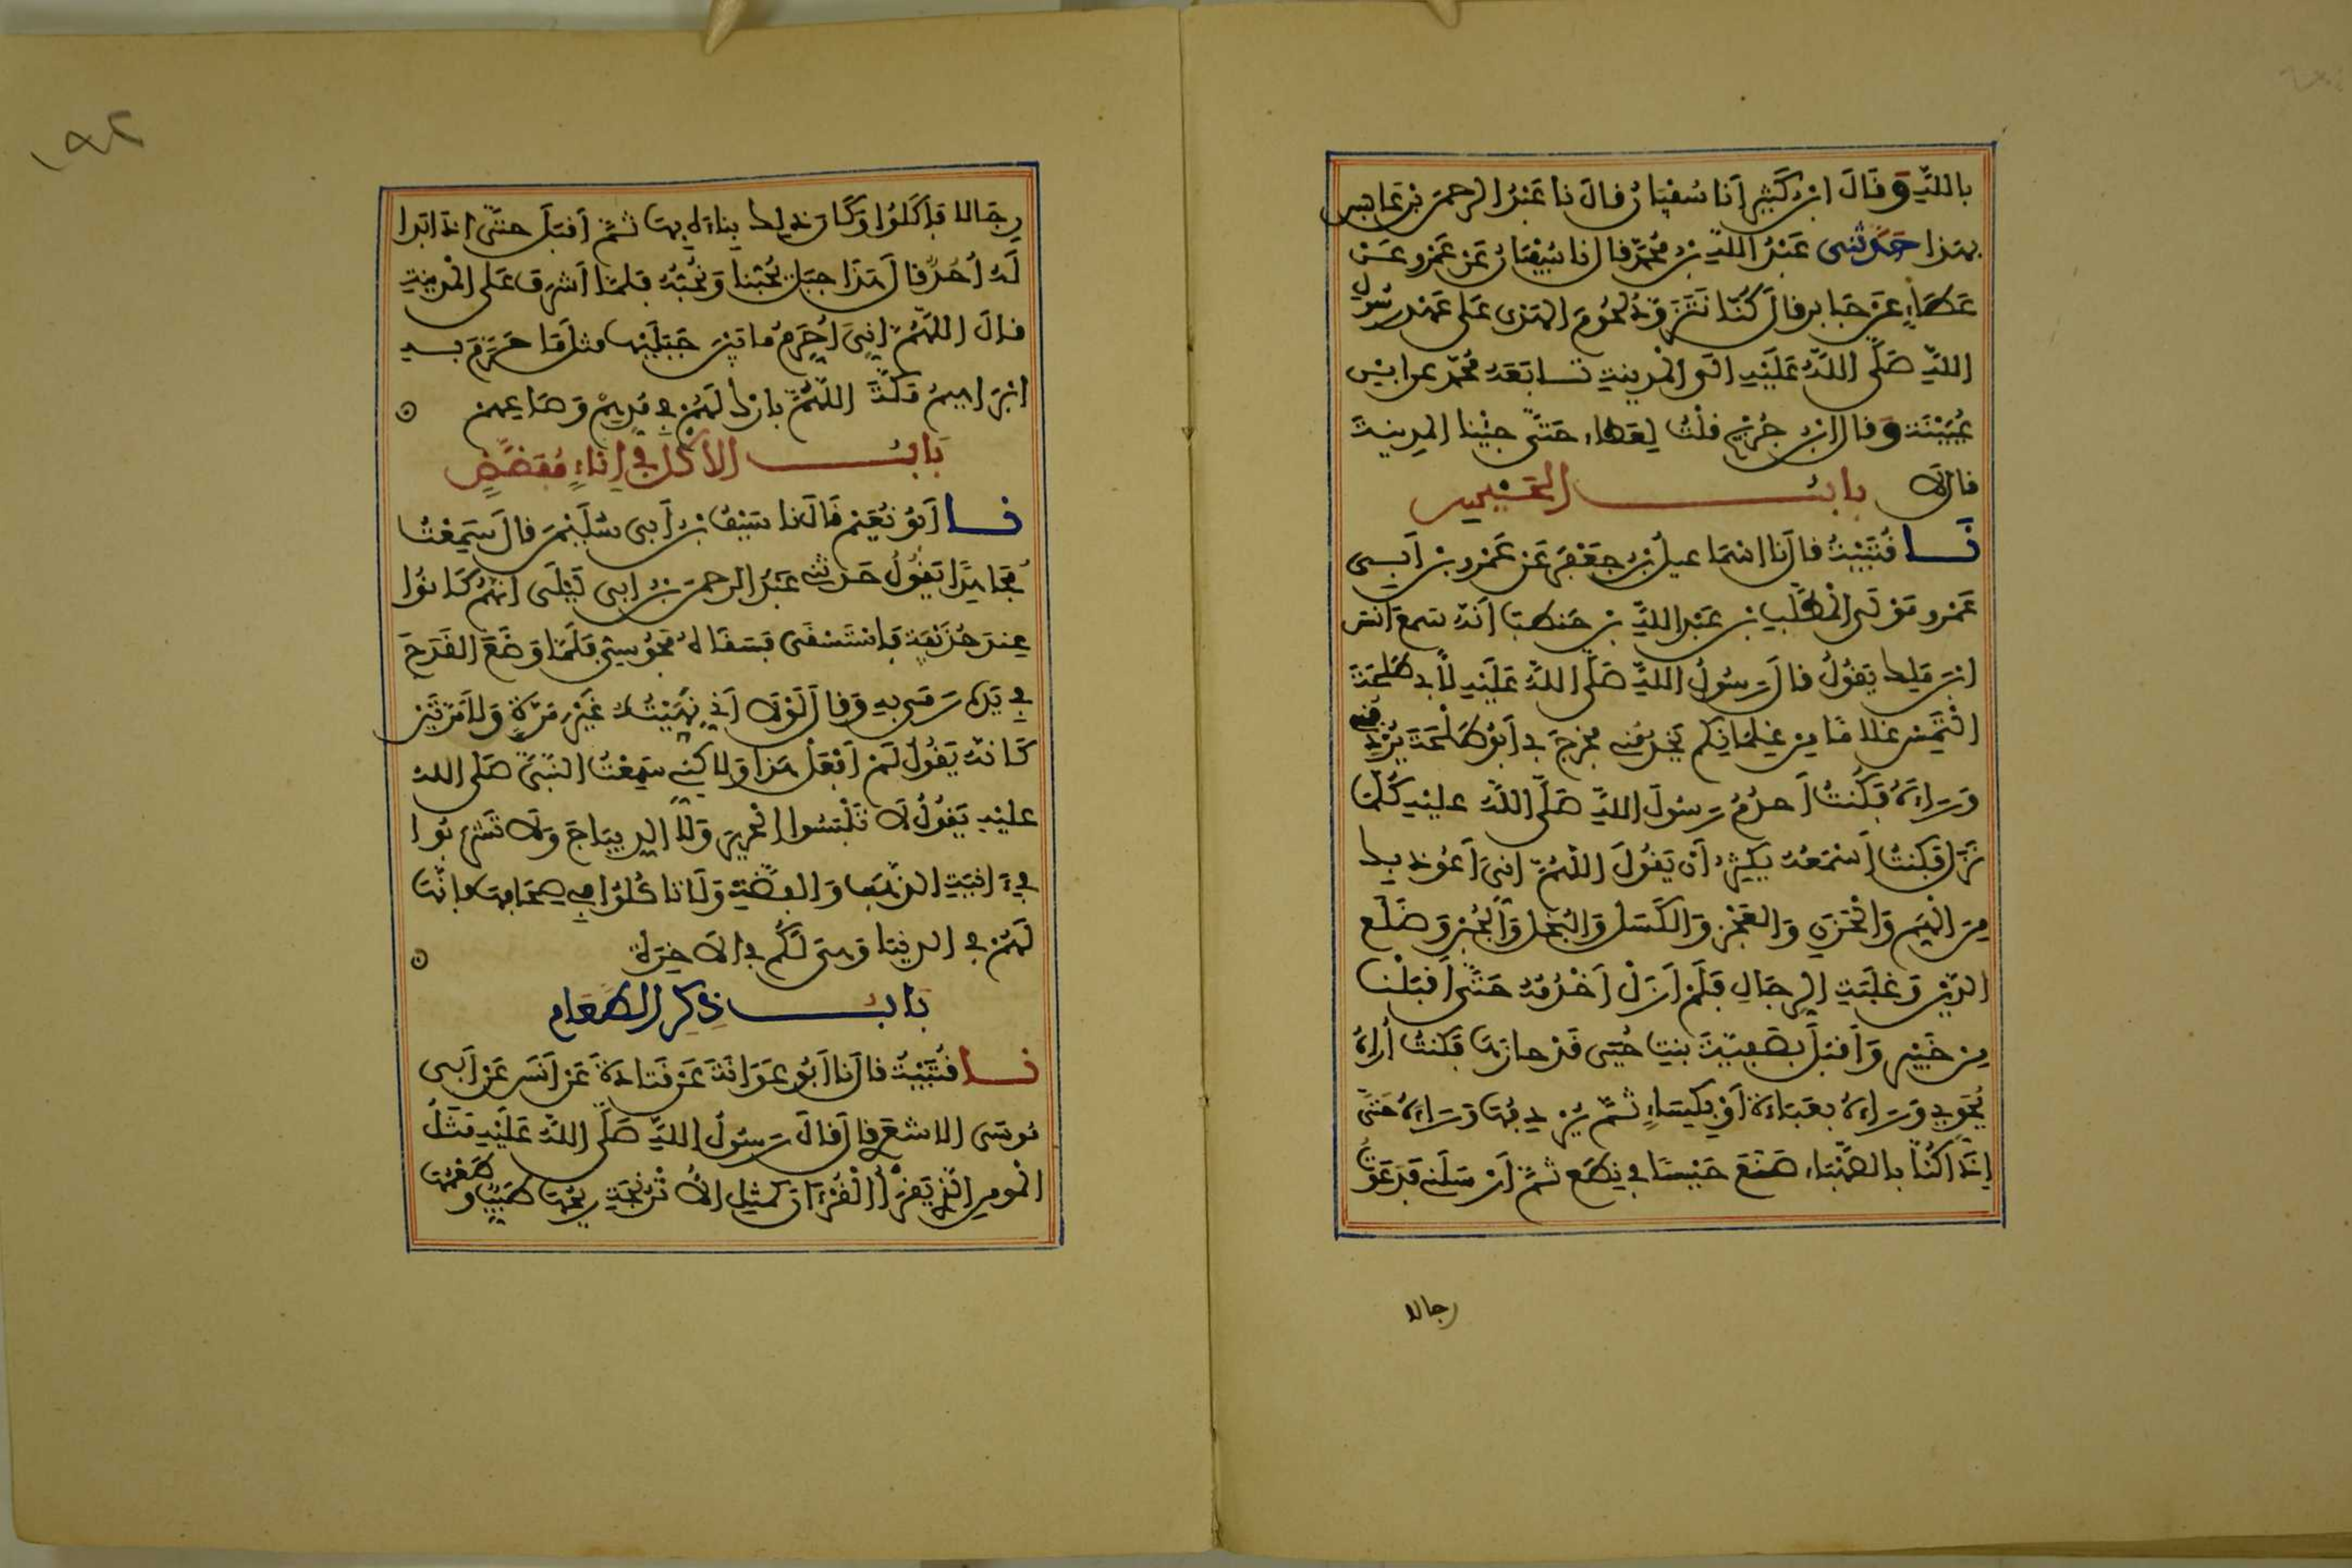 بالله وقال ابن كثير انا سفيان قال نا عبد الرحمن بن عابس
بهذا حدثني عبد الله بن محمد قال نا سفيان عن عمرو عن
عطاء عن جابر قال كنا نتزود لحوم الهدى على عهد رسول
الله صلى الله عليه الى المدينة تابعه محمد عن ابن
عيينة وقال ابن جريج قلت لعطاء حتى جئنا المدينة
قال لا باب الحيس
نا قتيبة قال نا اسماعيل بن جعفر عن عمرو بن ابي
عمرو مولى المطلب بن عبد الله بن حنطب انه سمع انس
ابن ملك يقول قال رسول الله صلى الله عليه لابي طلحة
التمس غلاما من غلمانكم يخدمني فخرج بي ابو طلحة يردفني
وراءه فكنت أخدم رسول الله صلى الله عليه كلما
نزل فكنت أسمعه يكثر أن يقول اللهم اني أعوذ بك
من الهم والحزن والعجز والكسل والبخل والجبن وضلع
الدين وغلبة الرجال فلم ازل أخدمه حتى أقبلنا
من خيبر وأقبل بصفية بنت حيي قد حازها فكنت أراه
يحوي وراءه بعباءة أو بكساء ثم يردفها وراءه حتى
إذا كنا بالصهباء صنع حيسا في نطع ثم أرسلني فدعوت
رجالا
١٩٢
رجالا فأكلوا وكان ذلك بناءه بها ثم أقبل حتى اذا بدا
له أحد قال هذا جبل يحبنا ونحبه فلما أشرف على المدينة
قال اللهم إني أحرم ما بين جبليها مثل ما حرم به
ابراهيم مكة اللهم بارك لهم في مدهم وصاعهم
باب الأكل في إناء مفضض
نا أبو نعيم قال نا سيف بن أبي سليمن قال سمعت
مجاهدا يقول حدثني عبد الرحمن بن ابي ليلى انهم كانوا
عند حذيفة فاستسقى فسقاه مجوسي فلما وضع القدح
في يده رمى به وقال لولا أني نهيته غير مرة ولا مرتين
كأنه يقول لم أفعل هذا ولاكني سمعت النبي صلى الله
عليه يقول لا تلبسوا الحرير ولا الديباج ولا تشربوا
في ءانية الذهب والفضة ولا تاكلوا في صحافها فإنها
لهم في الدنيا وهي لكم في الاخرة
باب ذكر الطعام
نا قتيبة قال نا أبو عوانة عن قتادة عن أنس عن أبي
موسى الاشعري قال قال رسول الله صلى الله عليه مثل
المومن الذي يقرأ القرءان كمثل الأترنجة ريحها طيب وطعمها